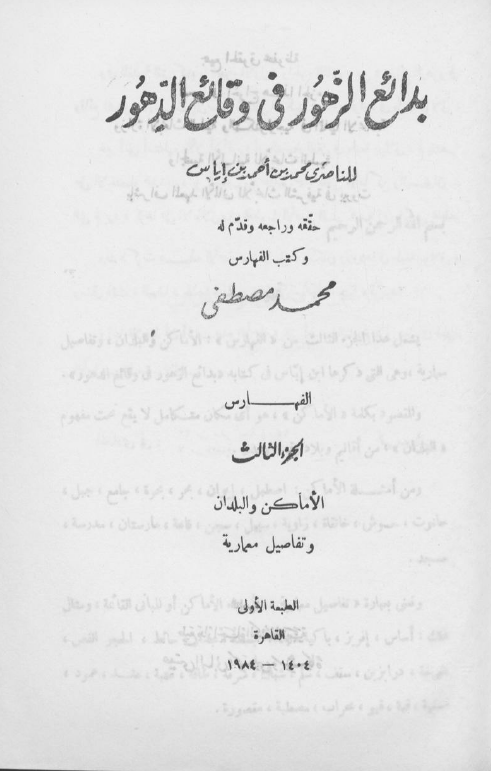 بدائع الزهور في وقائع الدهور
للناصري محمد بن أحمد بن إياس
حققه وراجعه وقدم له
وكتب الفهارس
محمد مصطفى
الفهارس
الجزء الثالث
الأماكن والبلدان
وتفاصيل معمارية
الطبعة الأولى
القاهرة
١٤٠٤ — ١٩٨٤